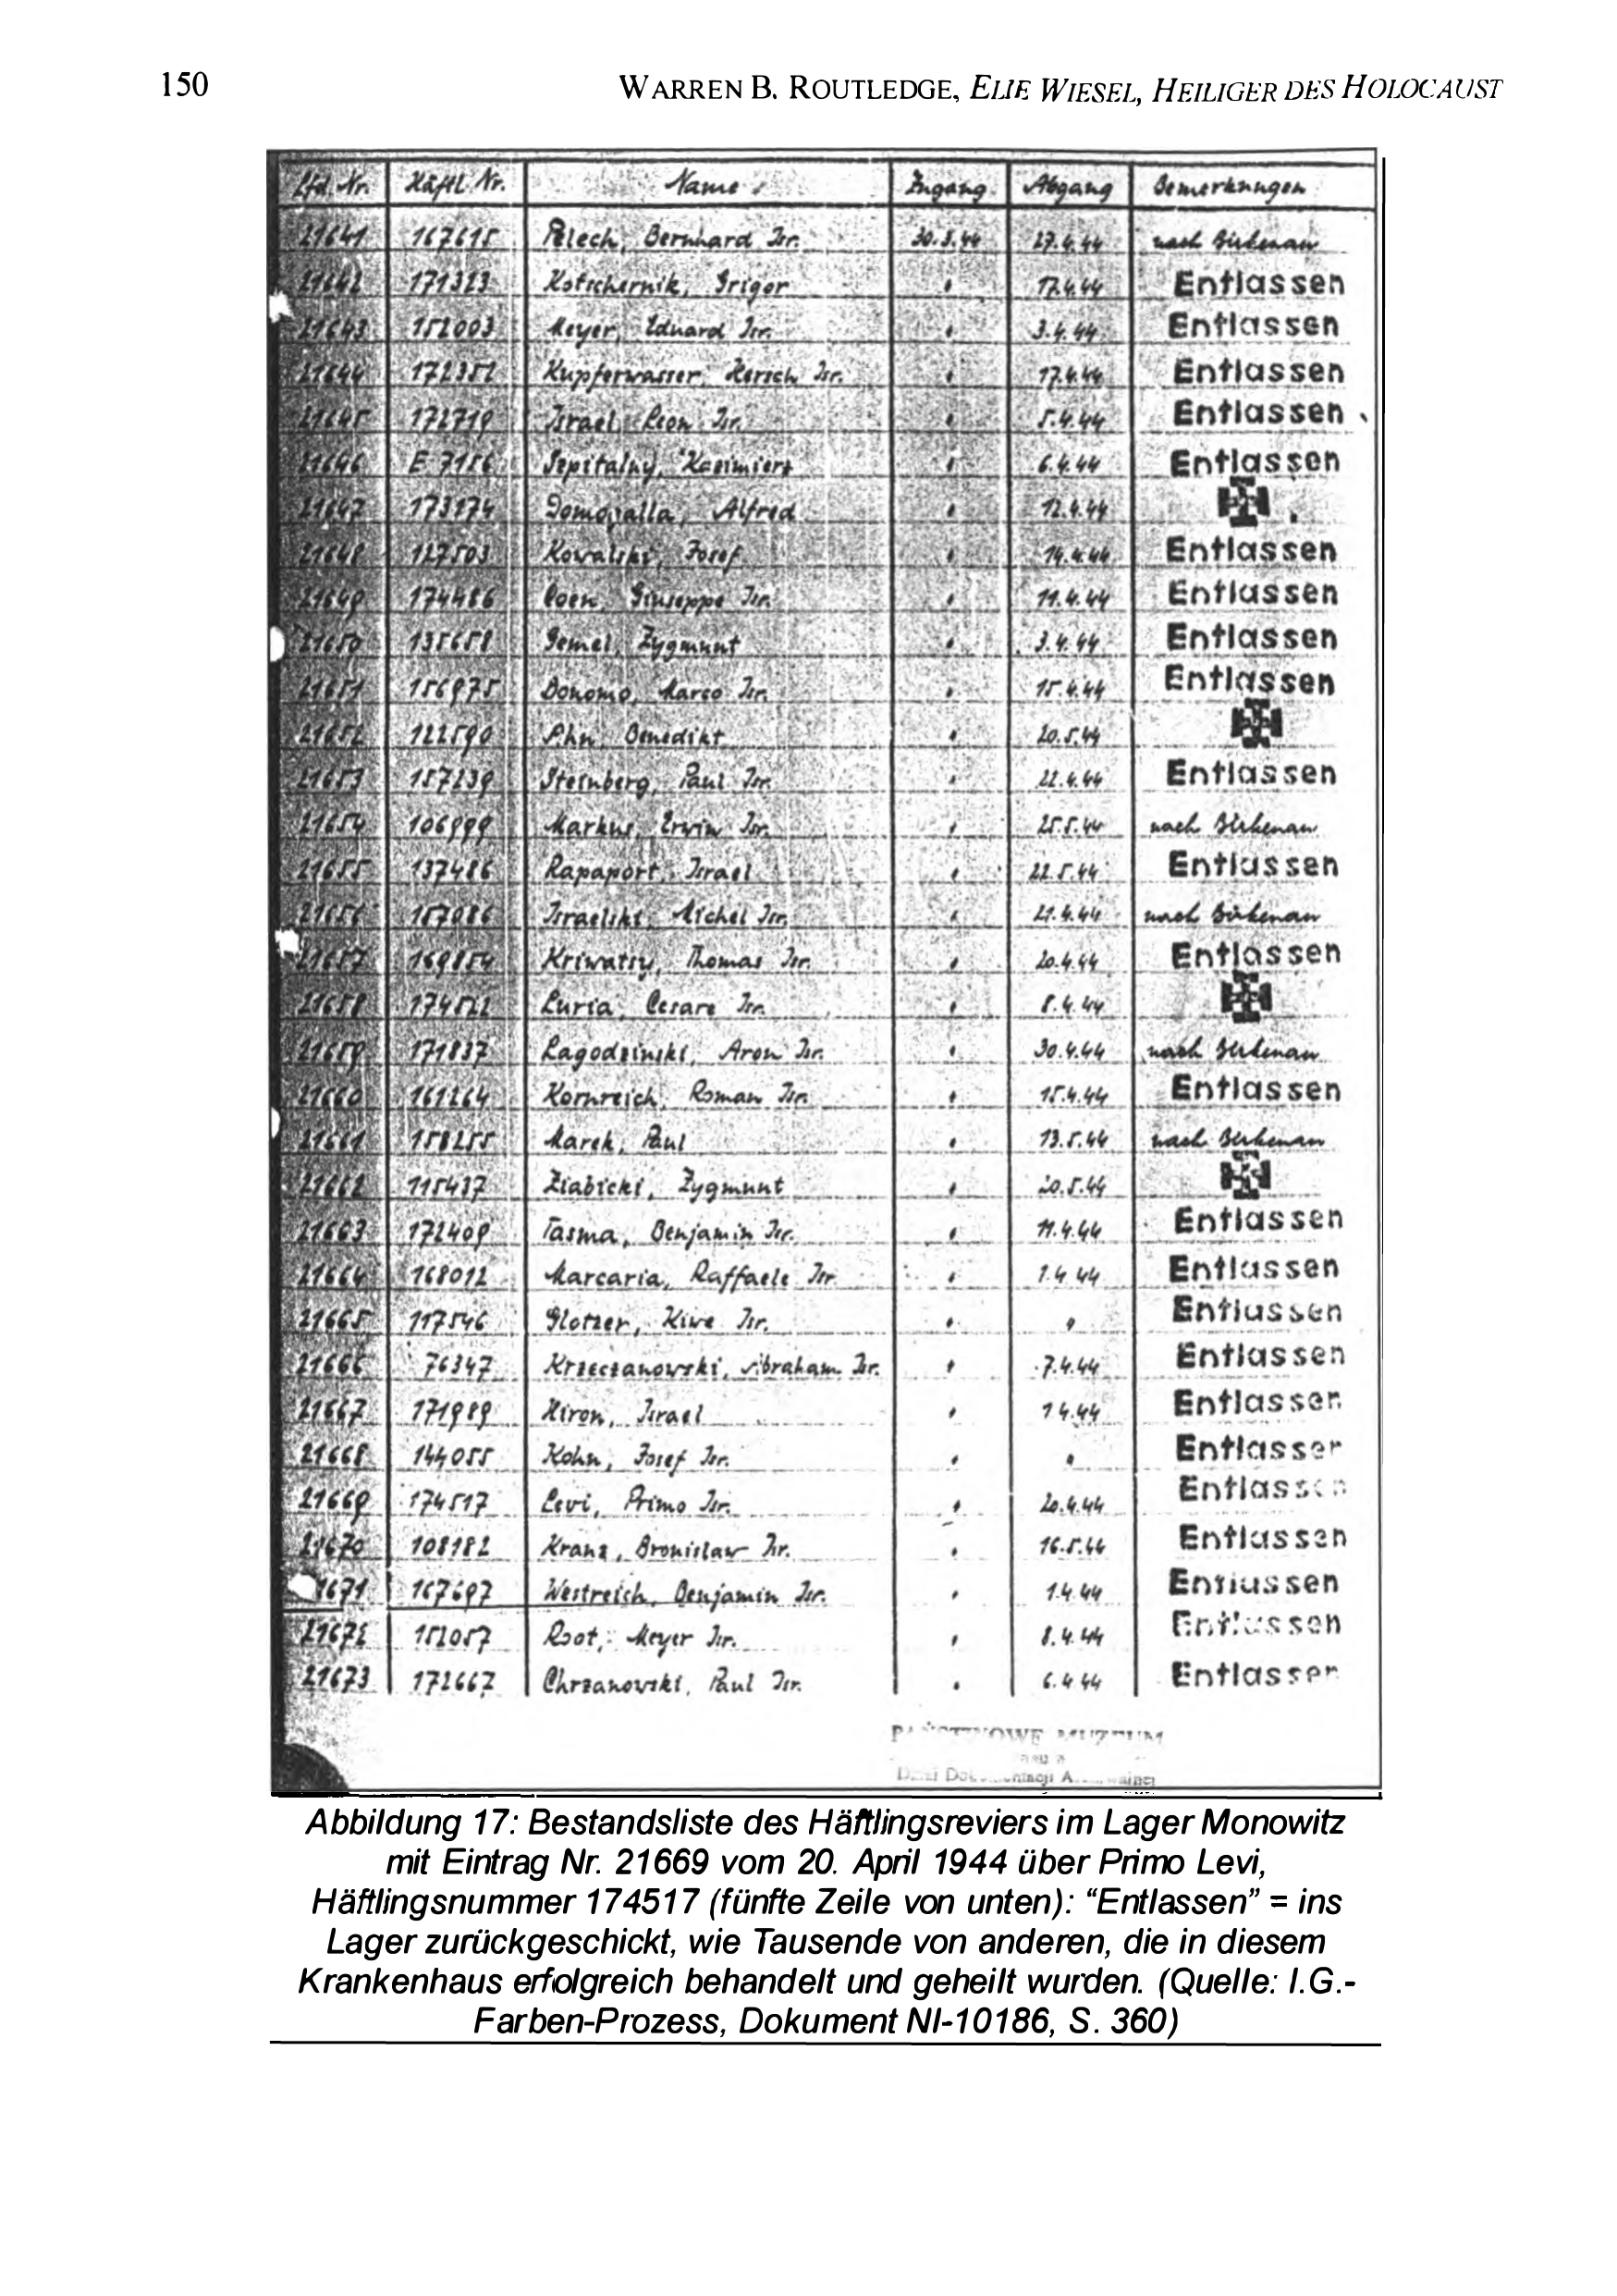 150 WARREN B. ROUTLEDGE, ELIE WIESEL, HEILIGER DES HOLOCAUST
Lfd. Nr. Häftl. Nr. Name Zugang Abgang Bemerkungen
21641 167615 Pelech, Bernhard Isr. 30.3.44 27.4.44 nach Birkenau
21642 171323 Kotschernik, Grigor " 17.4.44 Entlassen
21643 152003 Meyer, Eduard Isr. " 3.4.44 Entlassen
21644 172352 Kupferwasser, Hersch Isr. " 17.4.44 Entlassen
21645 172719 Israel, Leon Isr. " 5.4.44 Entlassen
21646 E 7186 Szpitalny, Kasimierz " 6.4.44 Entlassen
21647 173174 Alfred " 12.4.44
21648 127503 Kowalski, Josef " 14.4.44 Entlassen
21649 174486 Coen, Giuseppe Isr. " 11.4.44 Entlassen
21650 135658 Gemel, Zygmunt " 3.4.44 Entlassen
21651 156975 Bonomo, Marco Isr. " 15.4.44 Entlassen
21652 122590 Benedikt " 20.5.44
21653 157239 Steinberg, Paul Isr. " 22.4.44 Entlassen
21654 106999 Markus, Erwin Isr. " 25.5.44 nach Birkenau
21655 137486 Rapaport, Israel " 22.5.44 Entlassen
21656 157086 Israelski, Michel Isr. " 21.4.44 nach Birkenau
21657 169854 Kriwatsy, Thomas Isr. " 20.4.44 Entlassen
21658 174522 Luria, Cesare Isr. " 8.4.44
21659 171837 Lagodzinski, Aron Isr. " 30.4.44 nach Birkenau
21660 161264 Kornreich, Roman Isr. " 15.4.44 Entlassen
21661 158255 Marek, Paul " 13.5.44 nach Birkenau
21662 115437 Ziabicki, Zygmunt " 20.5.44
21663 172409 Tasma, Benjamin Isr. " 11.4.44 Entlassen
21664 168012 Marcaria, Raffaele Isr. " 1.4.44 Entlassen
21665 117546 Glotzer, Kiwe Isr. " " Entlassen
21666 76347 Krzeczanowski, Abraham Isr. " 7.4.44 Entlassen
21667 171989 Hiron, Israel " 1.4.44 Entlassen
21668 144055 Kohn, Josef Isr. " " Entlassen
21669 174517 Levi, Primo Isr. " 20.4.44 Entlassen
21670 108182 Kranz, Bronislaw Isr. " 16.5.44 Entlassen
21671 167697 Westreich, Benjamin Isr. " 1.4.44 Entlassen
21672 152057 Root, Meyer Isr. " 8.4.44 Entlassen
21673 172667 Chrzanowski, Paul Isr. " 6.4.44 Entlassen
MUZEUM
Abbildung 17: Bestandsliste des Häftlingsreviers im Lager Monowitz
mit Eintrag Nr. 21669 vom 20. April 1944 über Primo Levi,
Häftlingsnummer 174517 (fünfte Zeile von unten): “Entlassen” = ins
Lager zurückgeschickt, wie Tausende von anderen, die in diesem
Krankenhaus erfolgreich behandelt und geheilt wurden. (Quelle: I.G.-
Farben-Prozess, Dokument NI-10186, S. 360)